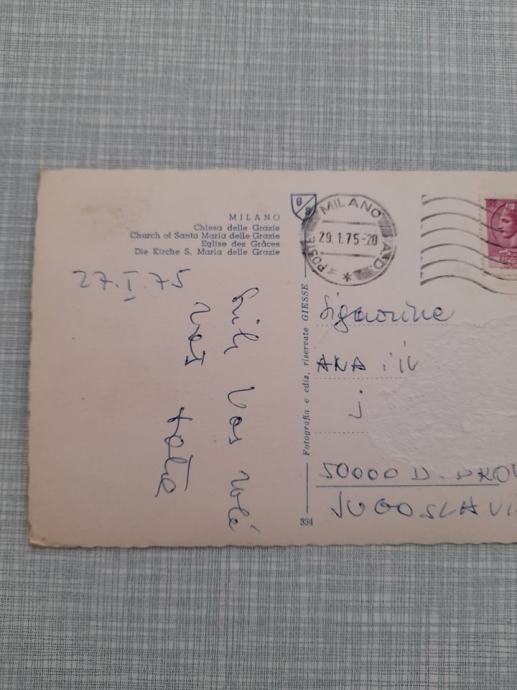 MILANO
Chiesa delle Grazie
Church of Santa Maria delle Grazie
Eglise des Grâces
Die Kirche S. Maria delle Grazie
27.I.75
Vas voli
vaš
tata
Fotografia e ediz. riservata GIESSE
334
G S
POSTE MILANO
29.1.75-20
Signorine
ANA i
j
50000 D.
JUGOSLAVI